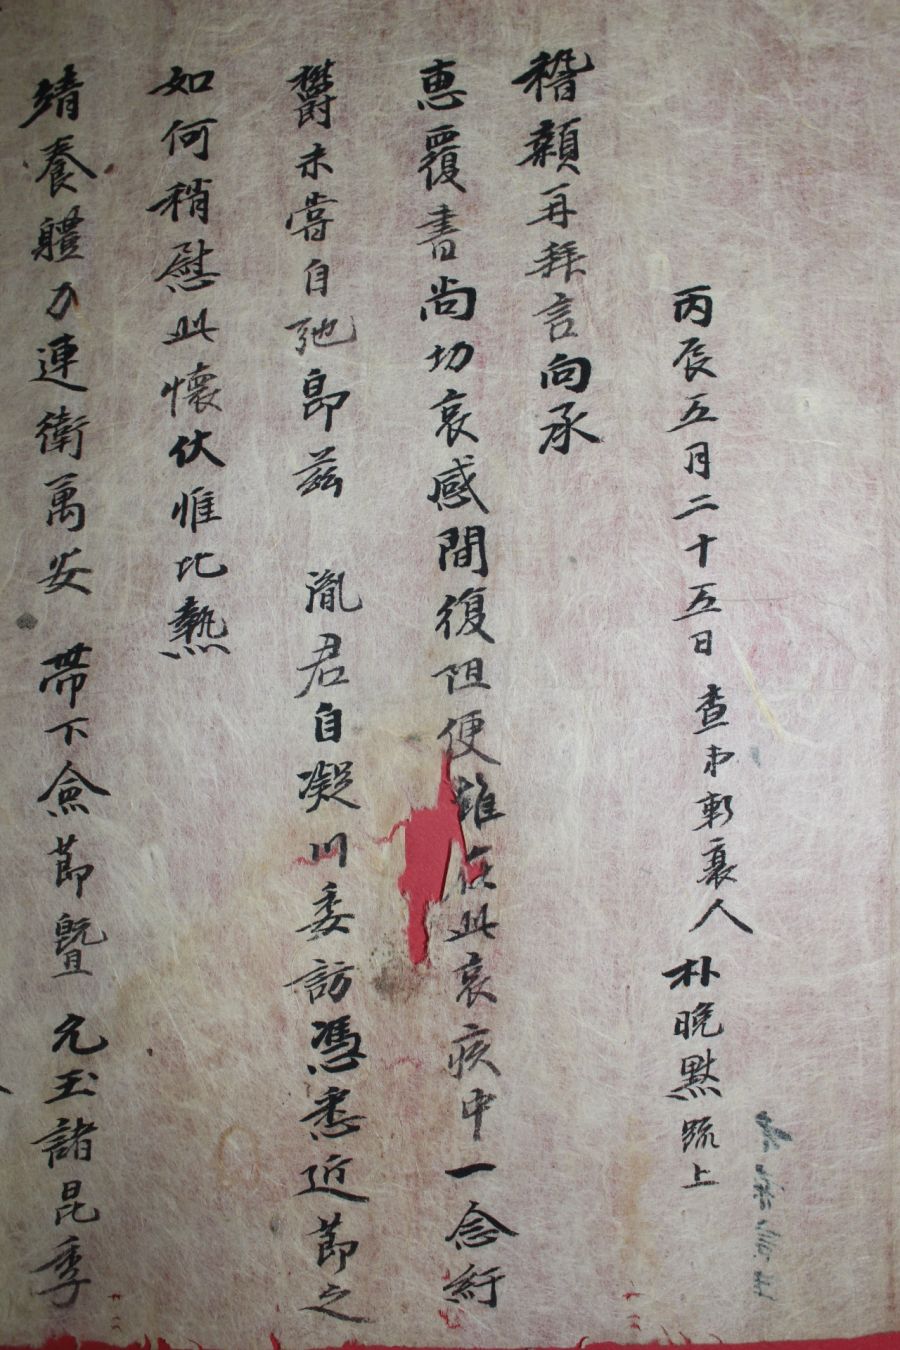 丙辰五月二十五日 查山斬衰人 朴晩點 疏上
稽顙再拜言向承
惠覆書尙切哀感間復阻便雖在此哀疚中一念紆
鬱未嘗自弛卽玆 胤君自凝川委訪憑悉近節之
如何稍慰此懷伏惟比熱
靖養體力連衛萬安 帶下僉節曁 允玉諸昆季